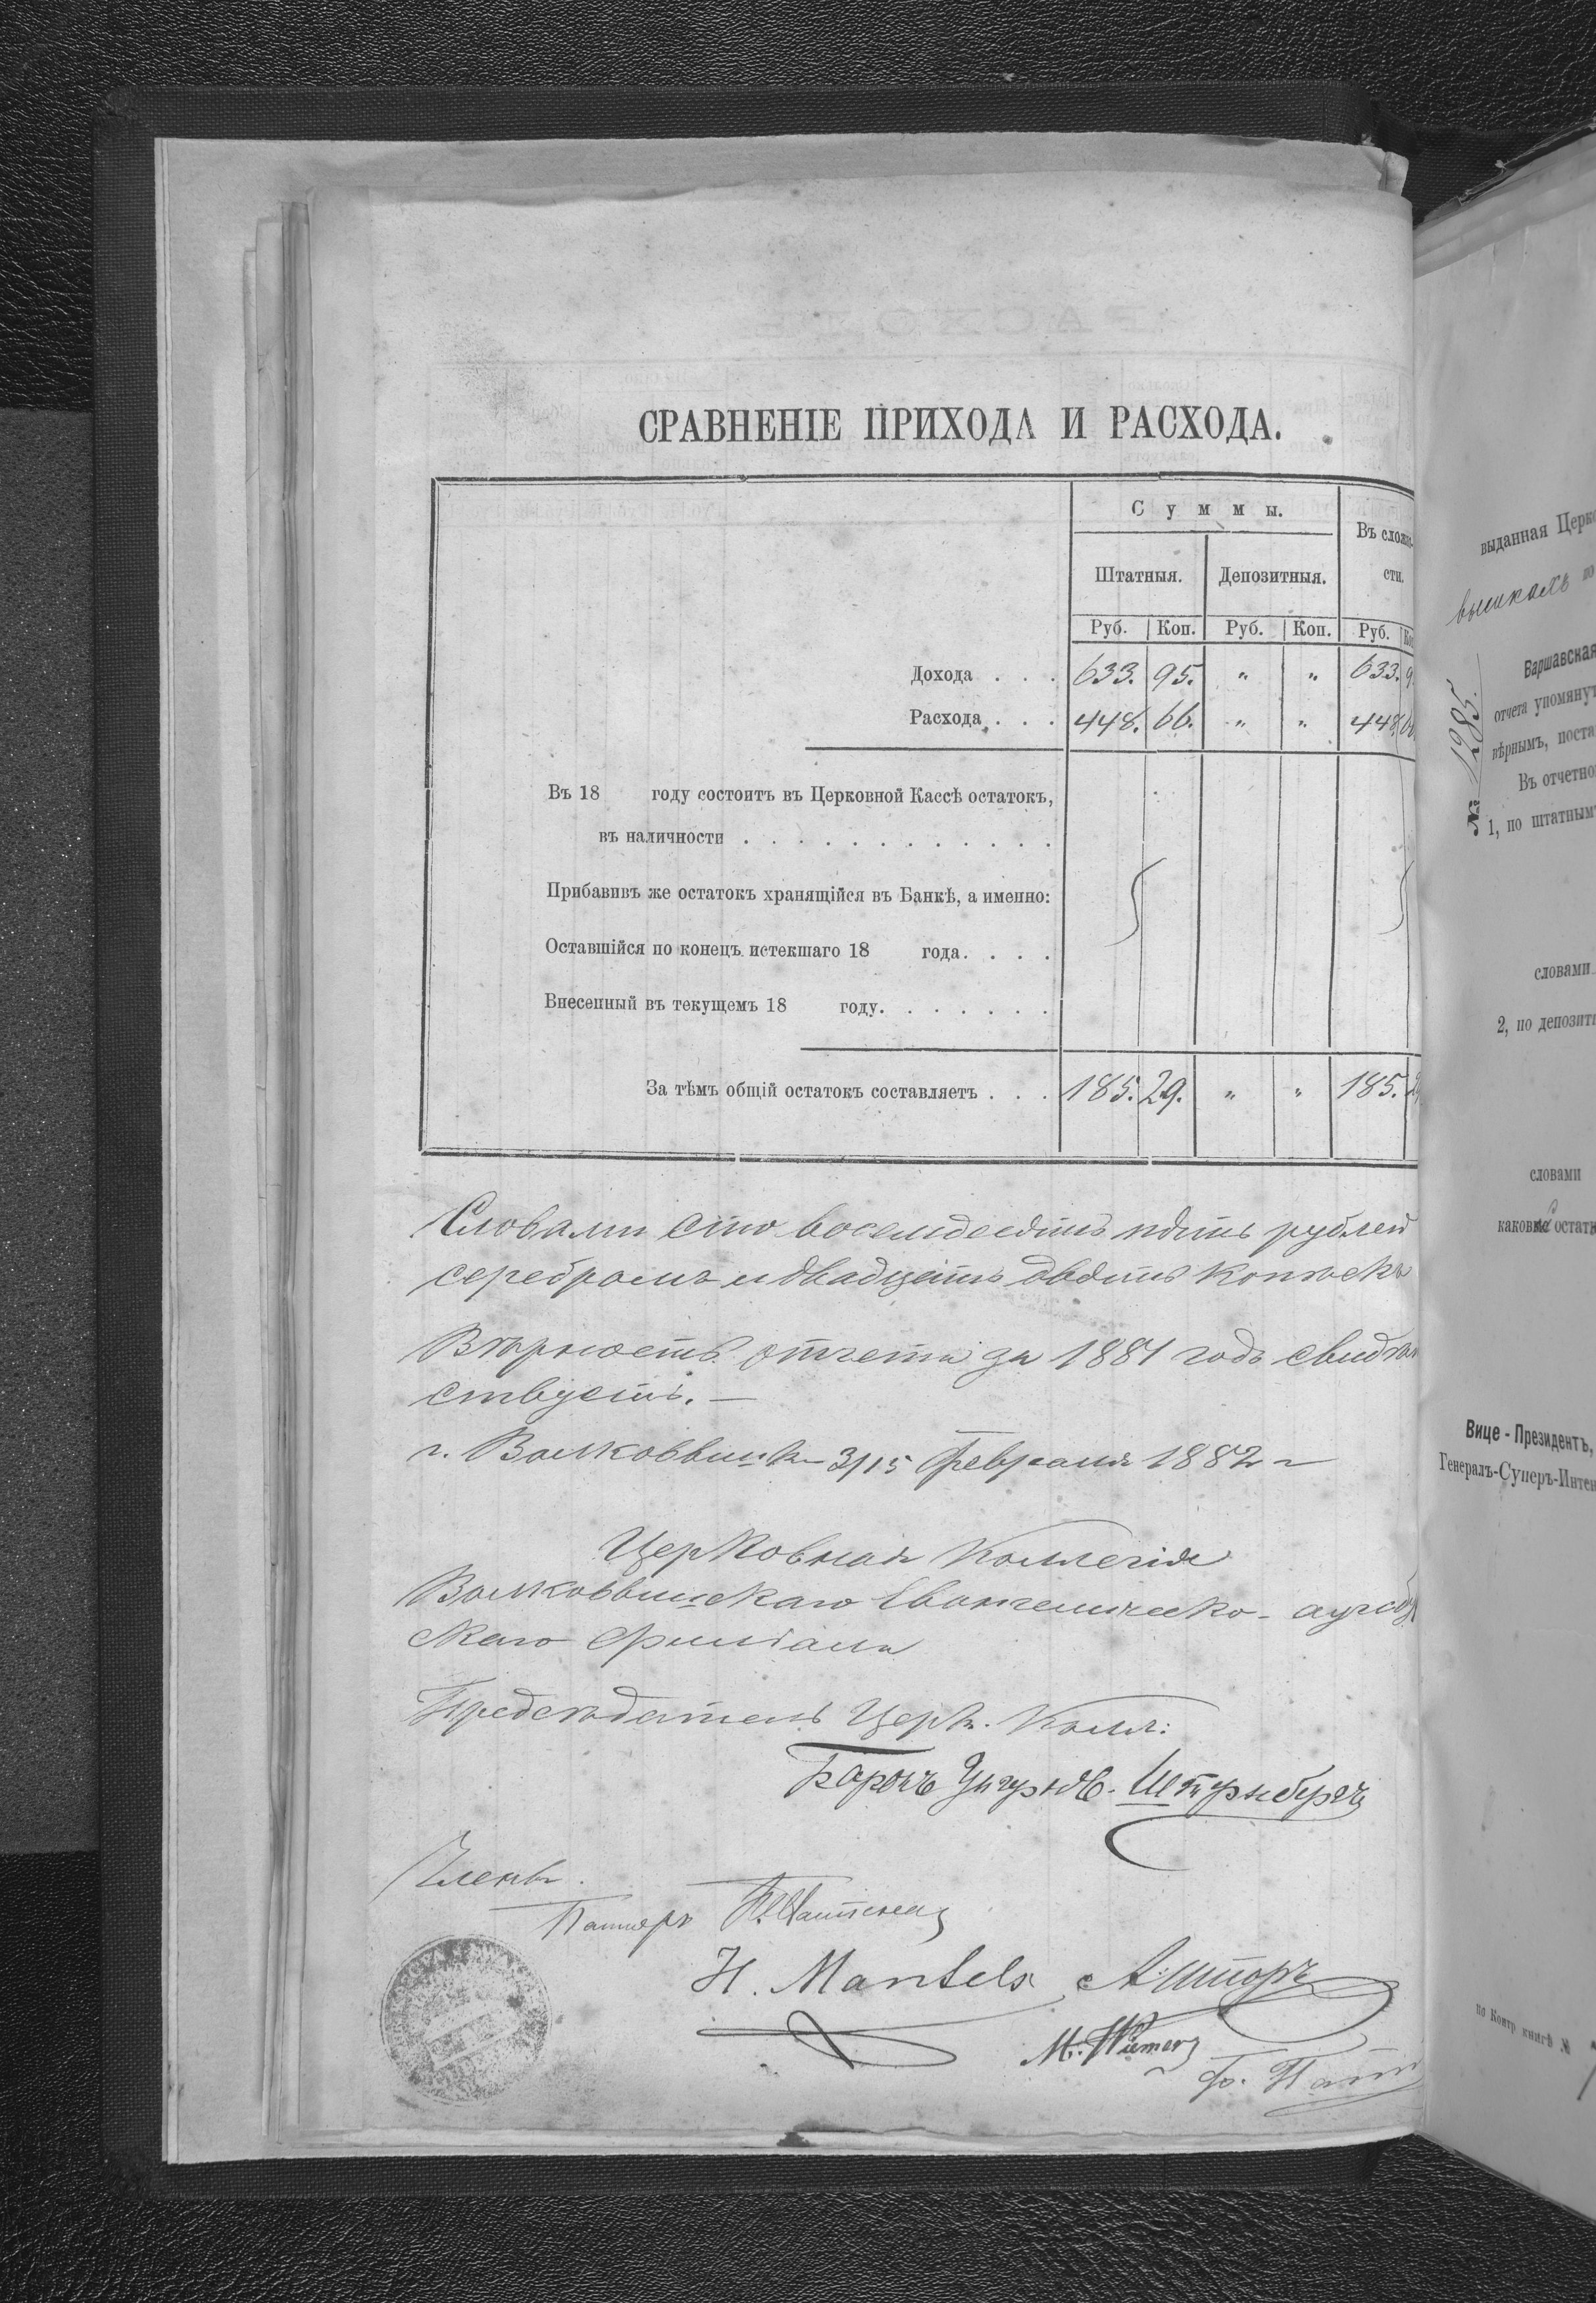 СРАВНЕНІЕ ПРИХОДА И РАСХОДА.
Суммы.
Въ сложно-
сти.
Штатныя. Депозитныя.
Руб. Коп. Руб. Коп. Руб. Коп
Дохода . . . 633. 95. " " 633. 9
Расхода . . . 448. 66. " " 448. 66
Въ 18 году состоитъ въ Церковной Кассѣ остатокъ,
въ наличности . . . . . . . . . . . .
Прибавивъ же остатокъ хранящійся въ Банкѣ, а именно:
Оставшійся по конецъ истекшаго 18 года. . . .
Внесенный въ текущемъ 18 году. . . . . . .
За тѣмъ общій остатокъ составляетъ . . . 185. 29. " " 185. 2
Словами сто восемдесятъ пять рублей
серебромъ и двадцать девять копѣекъ
Вѣрность отчета за 1881 годъ свидѣтель
ствуетъ. —
г. Волковышки 3/15 Февраля 1882 г
Церковная Коллегія
Волковышскаго Евангелическо- аугсбур
скаго Филіала
Предсѣдатель Церк. Колл:
Баронъ Унгернъ-Штернбергъ
Члены.
Пасторъ
H. Mantels
M. Wiemer
выданная Церко
вышкахъ по
№ 1285.
Варшавская
отчета упомянут
вѣрнымъ, поста
Въ отчетно
1, по штатным
словами
2, по депозит
словами
каковые остат
Вице - Президентъ,
Генералъ-Суперъ-Интен
по Контр книгѣ №